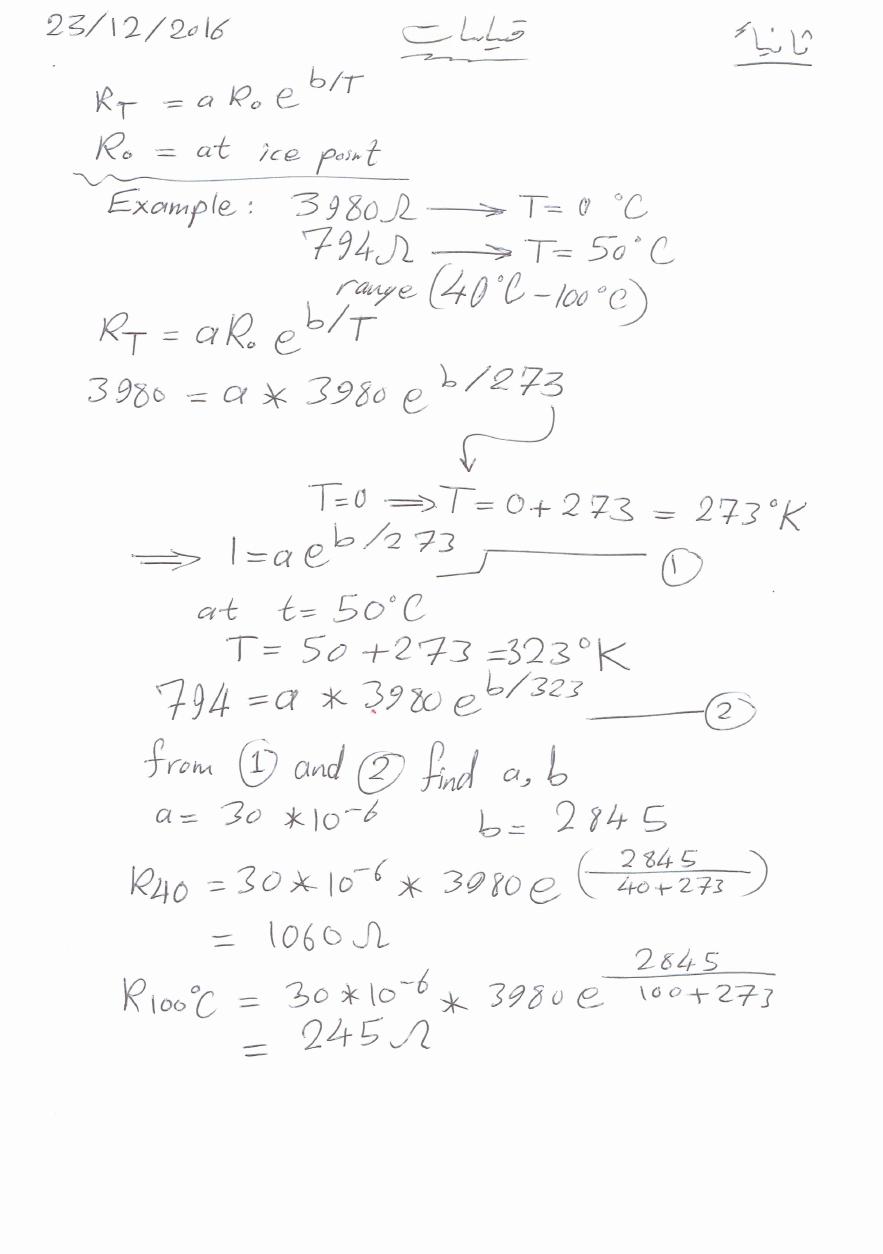 23/12/2016 قياسات ثانياً
R_T = a R₀ e^{b/T}
R₀ = at ice point
Example: 3980Ω → T= 0 °C
794Ω → T= 50°C
range (40°C-100°C)
R_T = aR₀ e^{b/T}
3980 = a * 3980 e^{b/273}
T=0 ⇒ T= 0+273 = 273°K
⇒ 1=a e^{b/273} ①
at t= 50°C
T= 50+273=323°K
794=a * 3980 e^{b/323} ②
from ① and ② find a, b
a= 30 *10⁻⁶ b= 2845
R₄₀ = 30*10⁻⁶ * 3980 e^(2845/(40+273))
= 1060Ω
R₁₀₀°C = 30*10⁻⁶ * 3980 e^{2845/(100+273)}
= 245Ω